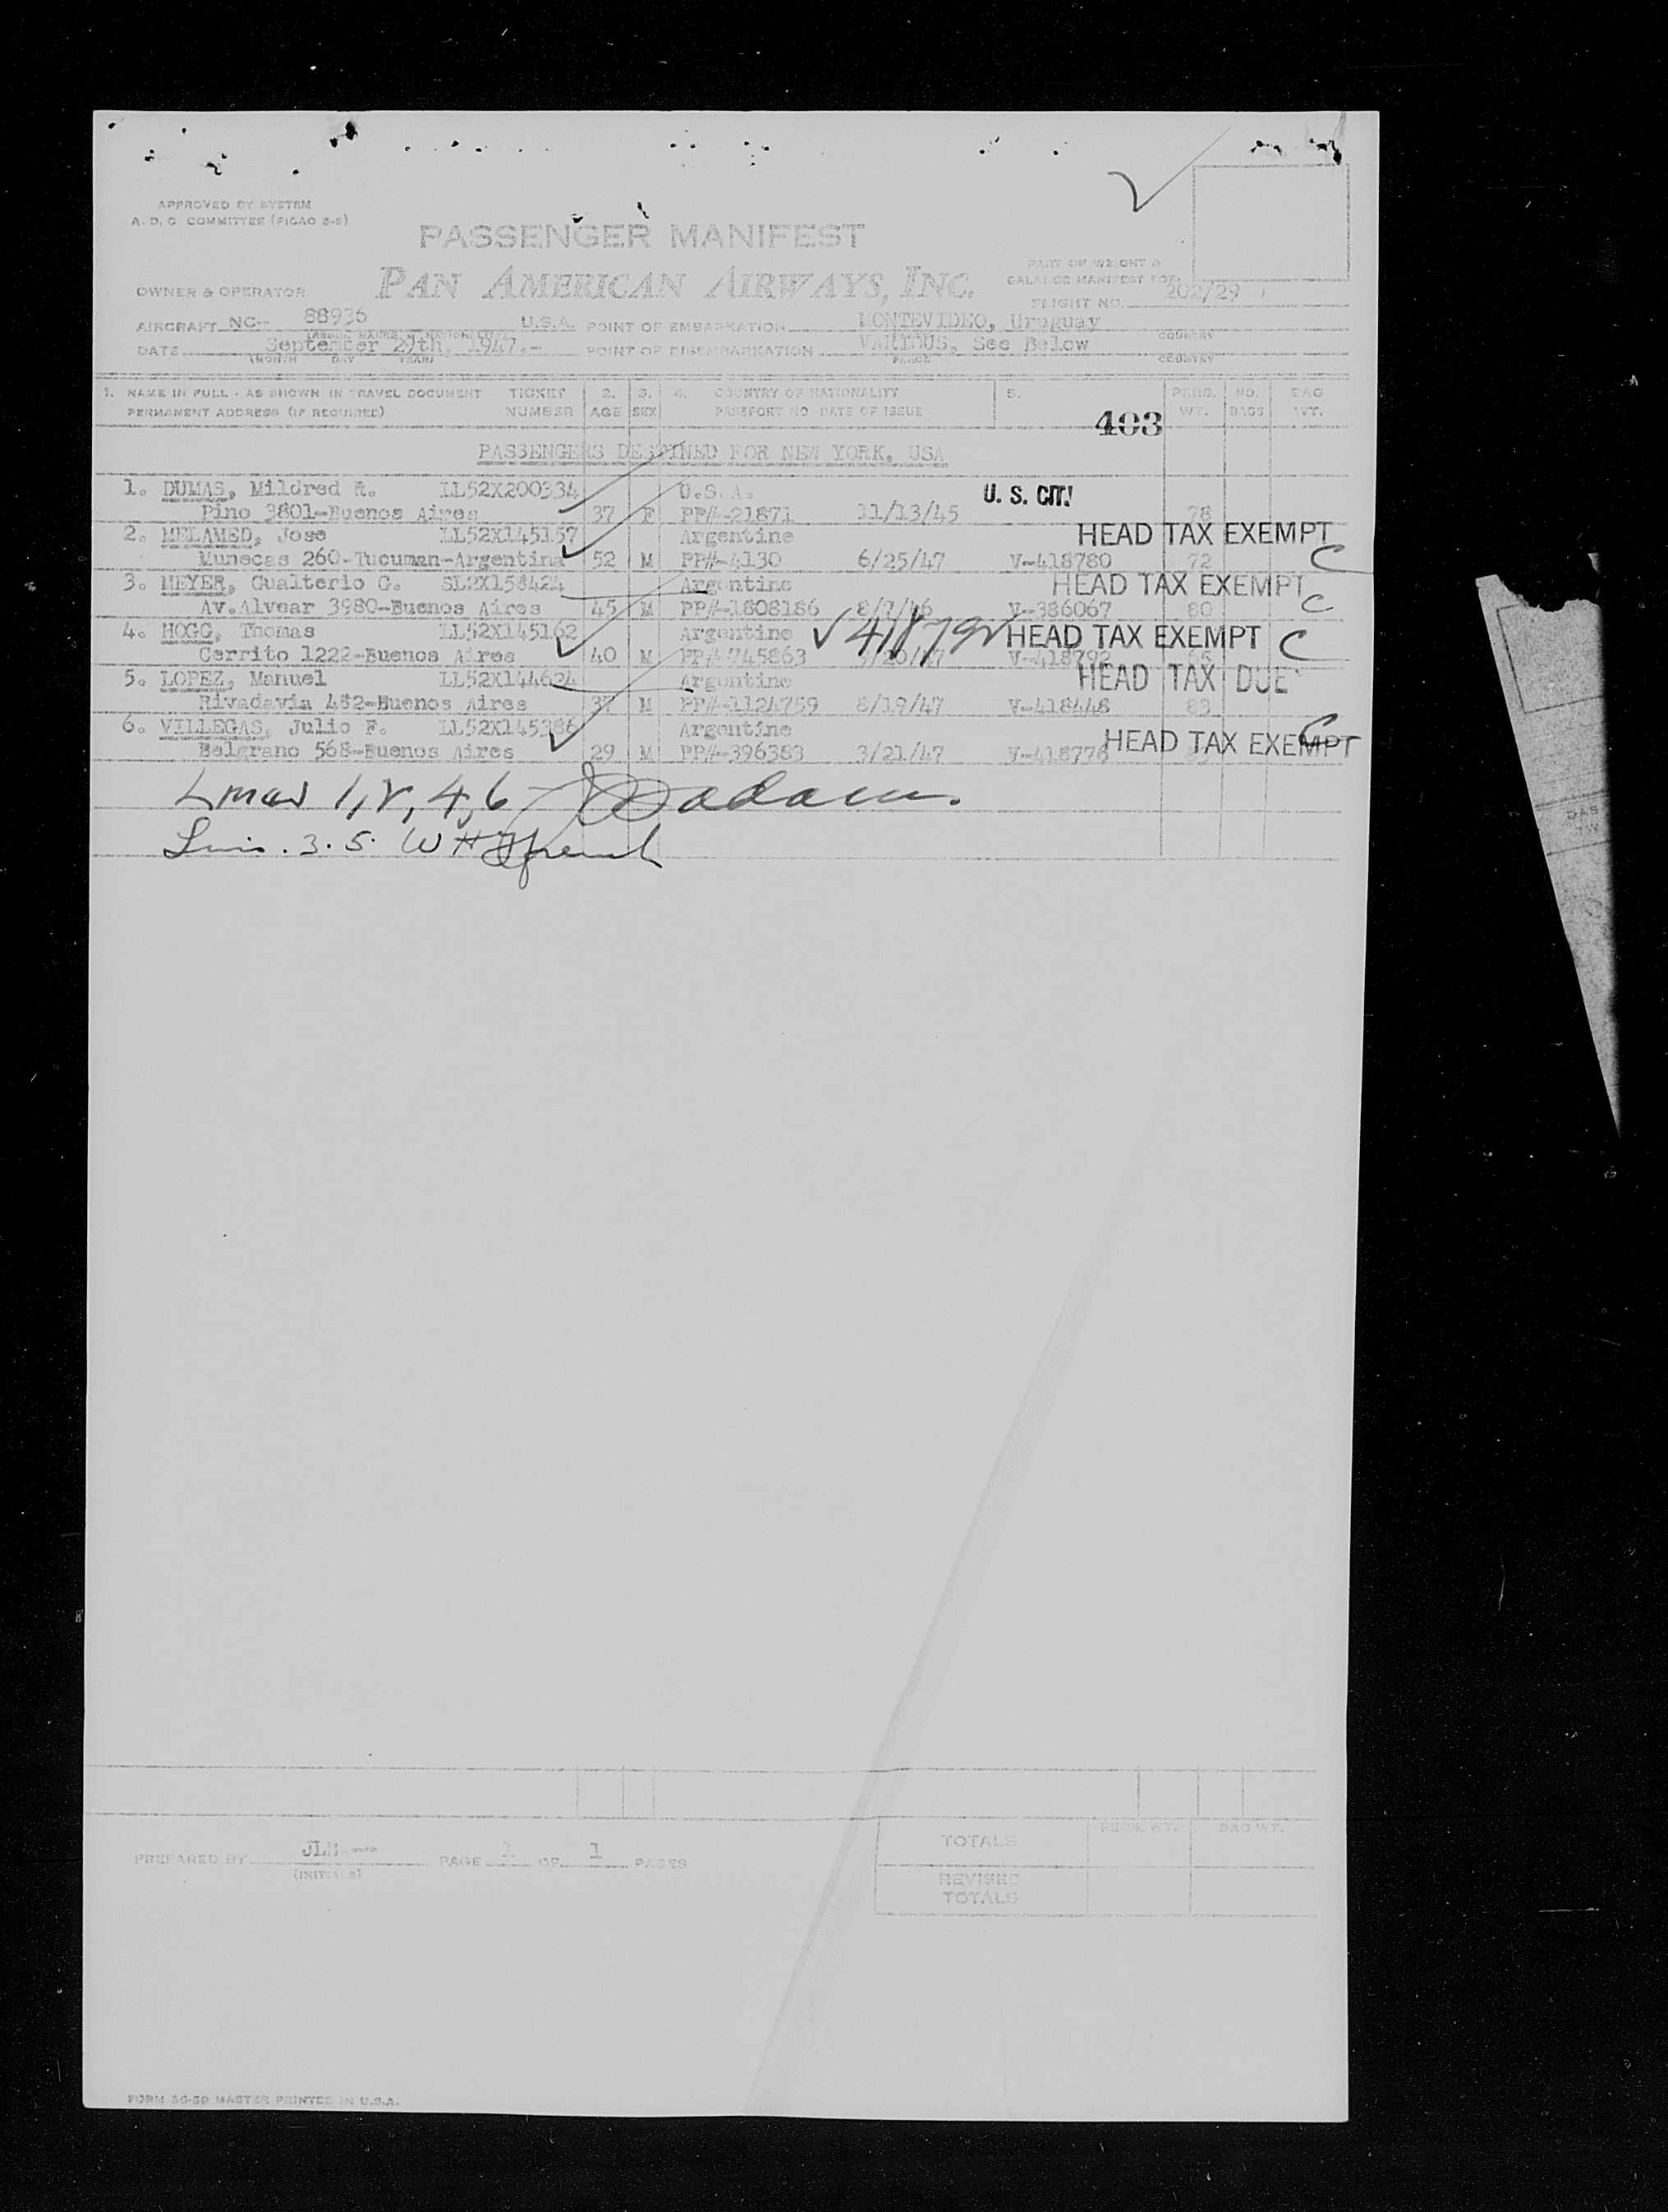 APPROVED BY SYSTEM
A. D. C COMMITTEE (PICAO 2-5)
PASSENGER MANIFEST
PAN AMERICAN AIRWAYS, INC.
PART OF WEIGHT &
BALANCE MANIFEST FOR
OWNER & OPERATOR
FLIGHT NO. 202/29
AIRCRAFT NC- 88936 U.S.A. POINT OF EMBARKATION MONTEVIDEO, Uruguay
COUNTRY
DATE September 29th, 1947.- POINT OF DISEMBARKATION VARIOUS, See Below
(MONTH DAY YEAR) PLACE COUNTRY
1. NAME IN FULL - AS SHOWN IN TRAVEL DOCUMENT TICKET 2. 3. 4. COUNTRY OF NATIONALITY 5. PERS. NO. BAG
PERMANENT ADDRESS (IF REQUIRED) NUMBER AGE SEX PASSPORT NO DATE OF ISSUE WT. BAGS WT.
403
PASSENGERS DESTINED FOR NEW YORK, USA
1. DUMAS, Mildred R. LL52X200334 U.S.A. U. S. CIT.
Pino 3801-Buenos Aires 37 F PP#-21871 11/13/45 78
2. MELAMED, Jose LL52X145157 Argentine HEAD TAX EXEMPT
Munecas 260-Tucuman-Argentina 52 M PP#-4130 6/25/47 V-418780 72 C
3. MEYER, Gualterio G. SL2X158424 Argentine HEAD TAX EXEMPT
Av.Alvear 3980-Buenos Aires 45 M PP#-1808186 8/7/46 V-386067 80 C
4. HOGG, Thomas LL52X145162 Argentine √418792 HEAD TAX EXEMPT C
Cerrito 1222-Buenos Aires 40 M PP#-745863 V-418792
5. LOPEZ, Manuel LL52X144624 Argentine HEAD TAX DUE
Rivadavia 482-Buenos Aires 37 M PP#-1124759 8/19/47 V-418448 83
6. VILLEGAS, Julio F. LL52X145386 Argentine HEAD TAX EXEMPT C
Belgrano 568-Buenos Aires 29 M PP#-396383 3/21/47 V-418776
1, 2, 4, 6
3. 5.
TOTALS PERS. WT. BAG WT.
PREPARED BY PAGE 1 OF 1 PAGES
(INITIALS)
REVISED
TOTALS
FORM 50-5D MASTER PRINTED IN U.S.A.